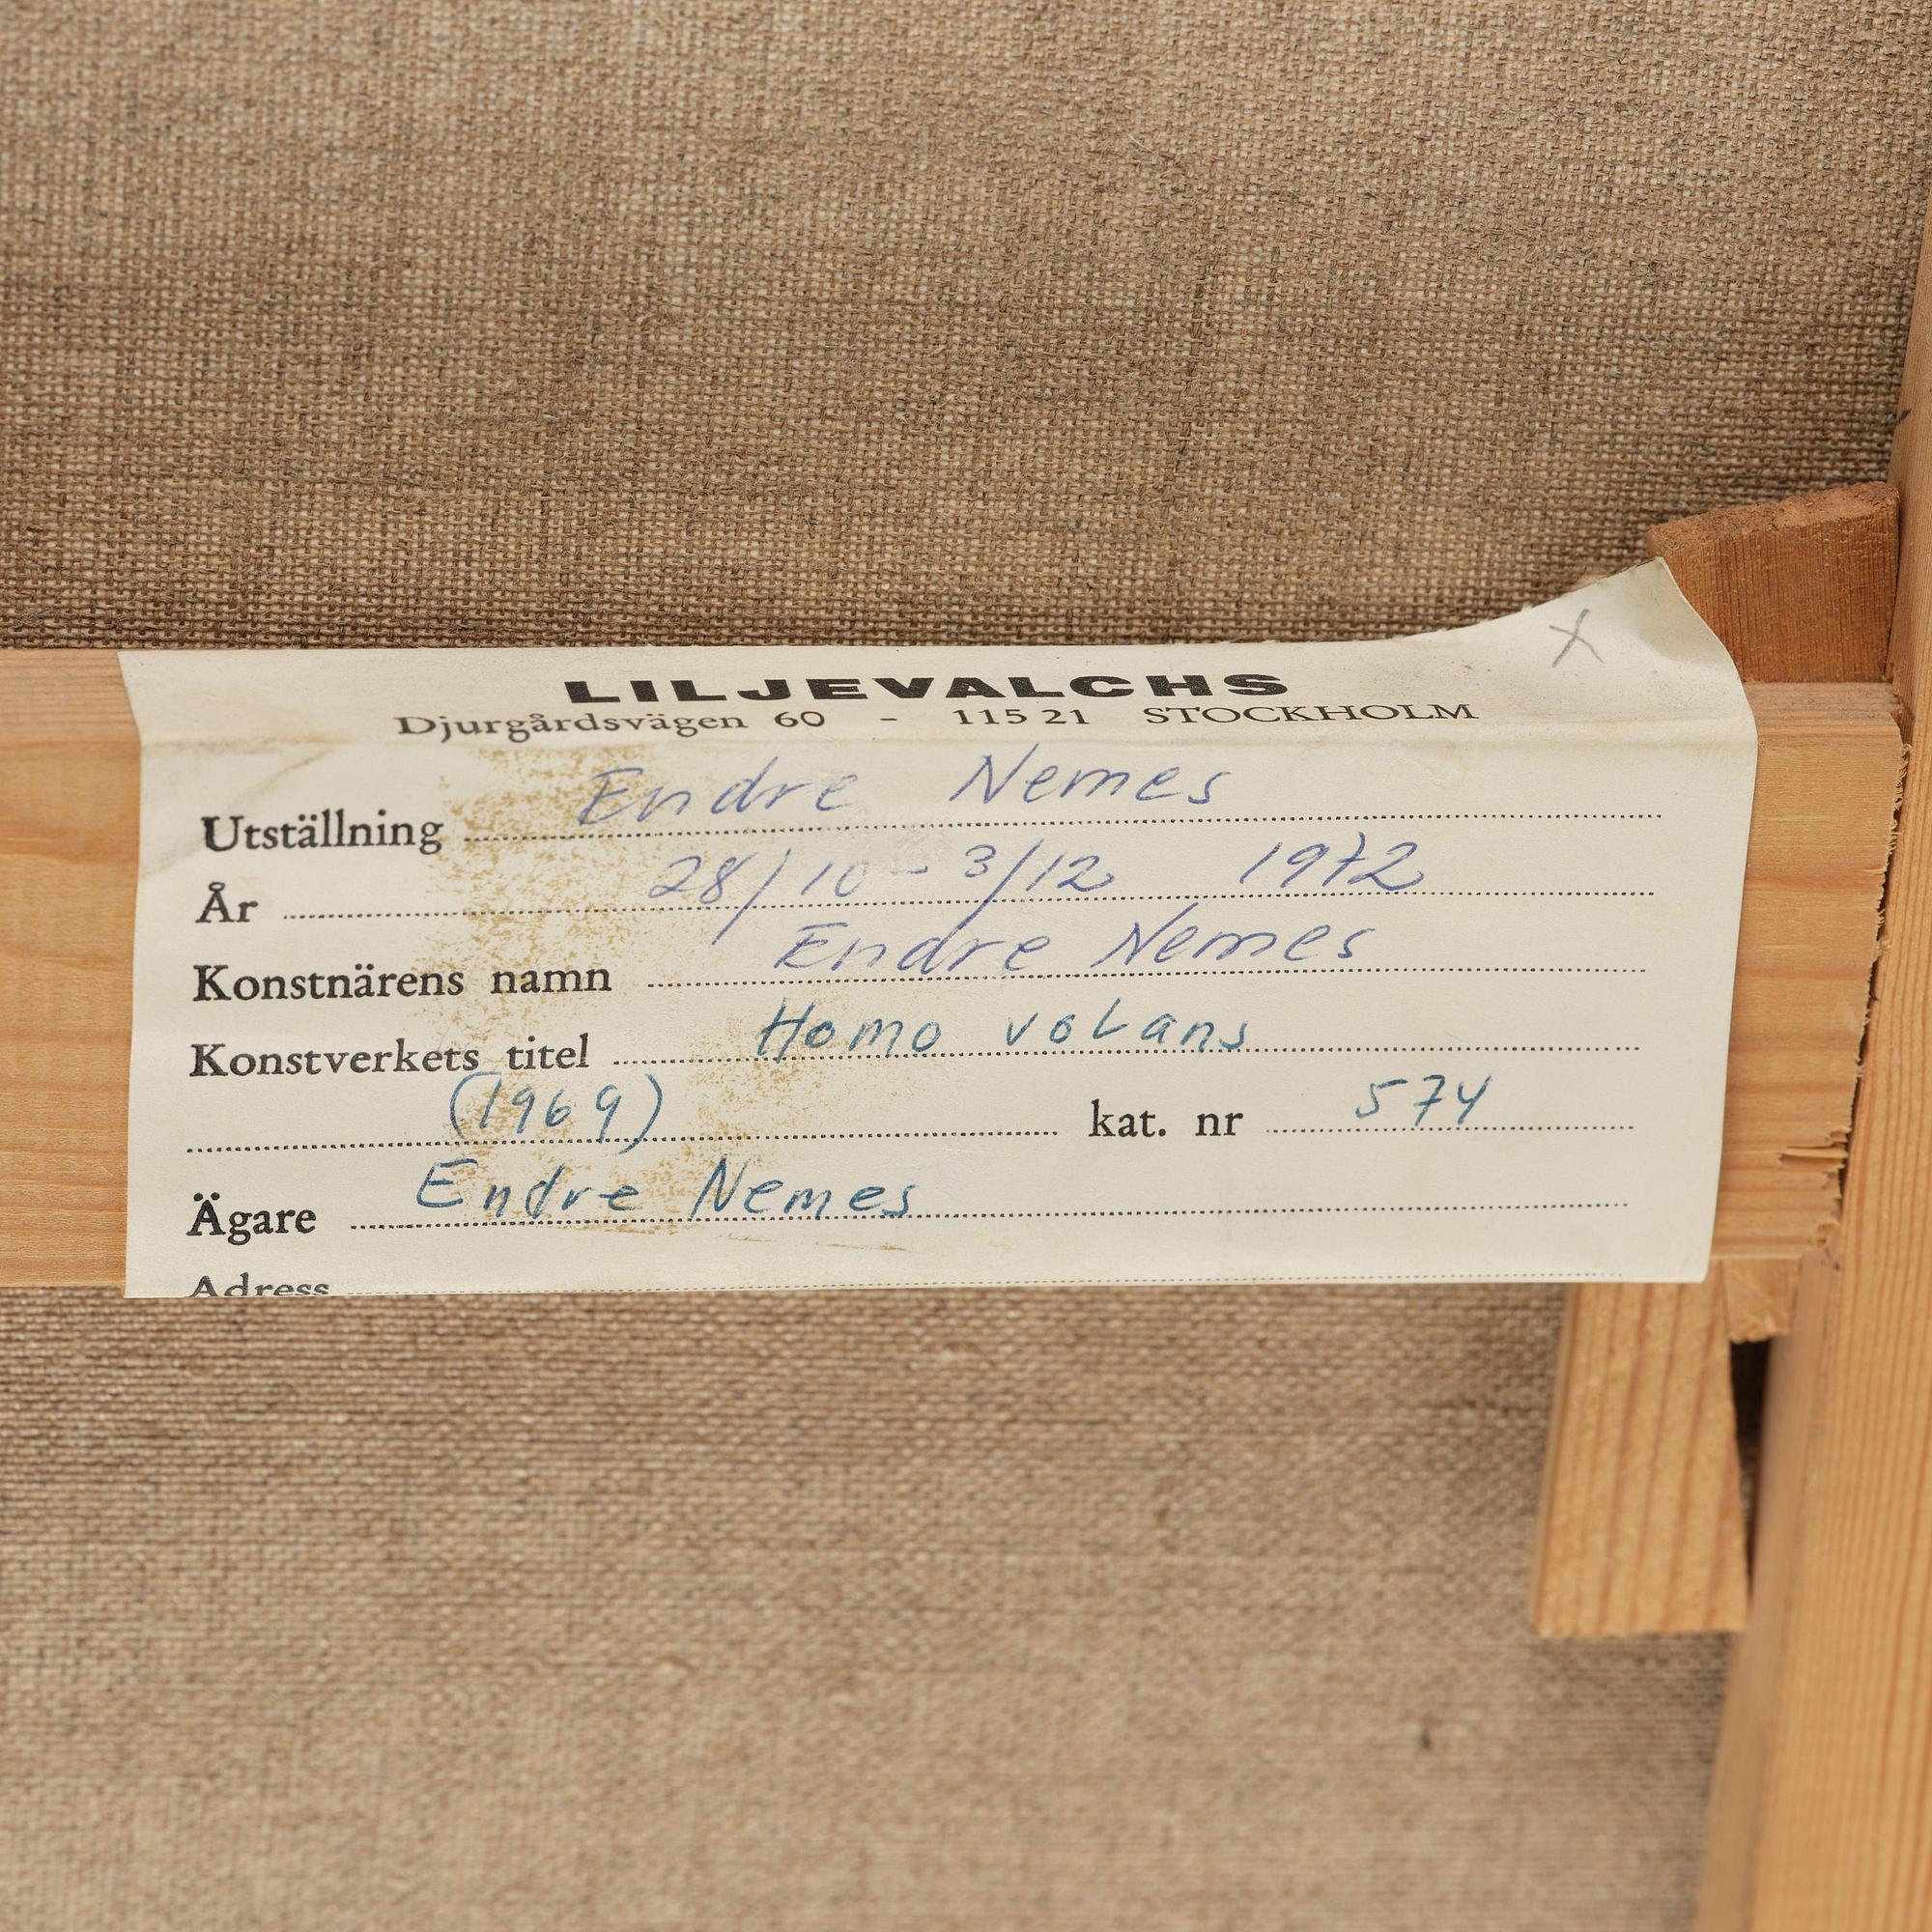 X
LILJEVALCHS
Djurgårdsvägen 60 - 115 21 STOCKHOLM
Utställning Endre Nemes
År 28/10 - 3/12 1972
Konstnärens namn Endre Nemes
Konstverkets titel Homo volans
(1969) kat. nr 574
Ägare Endre Nemes
Adress